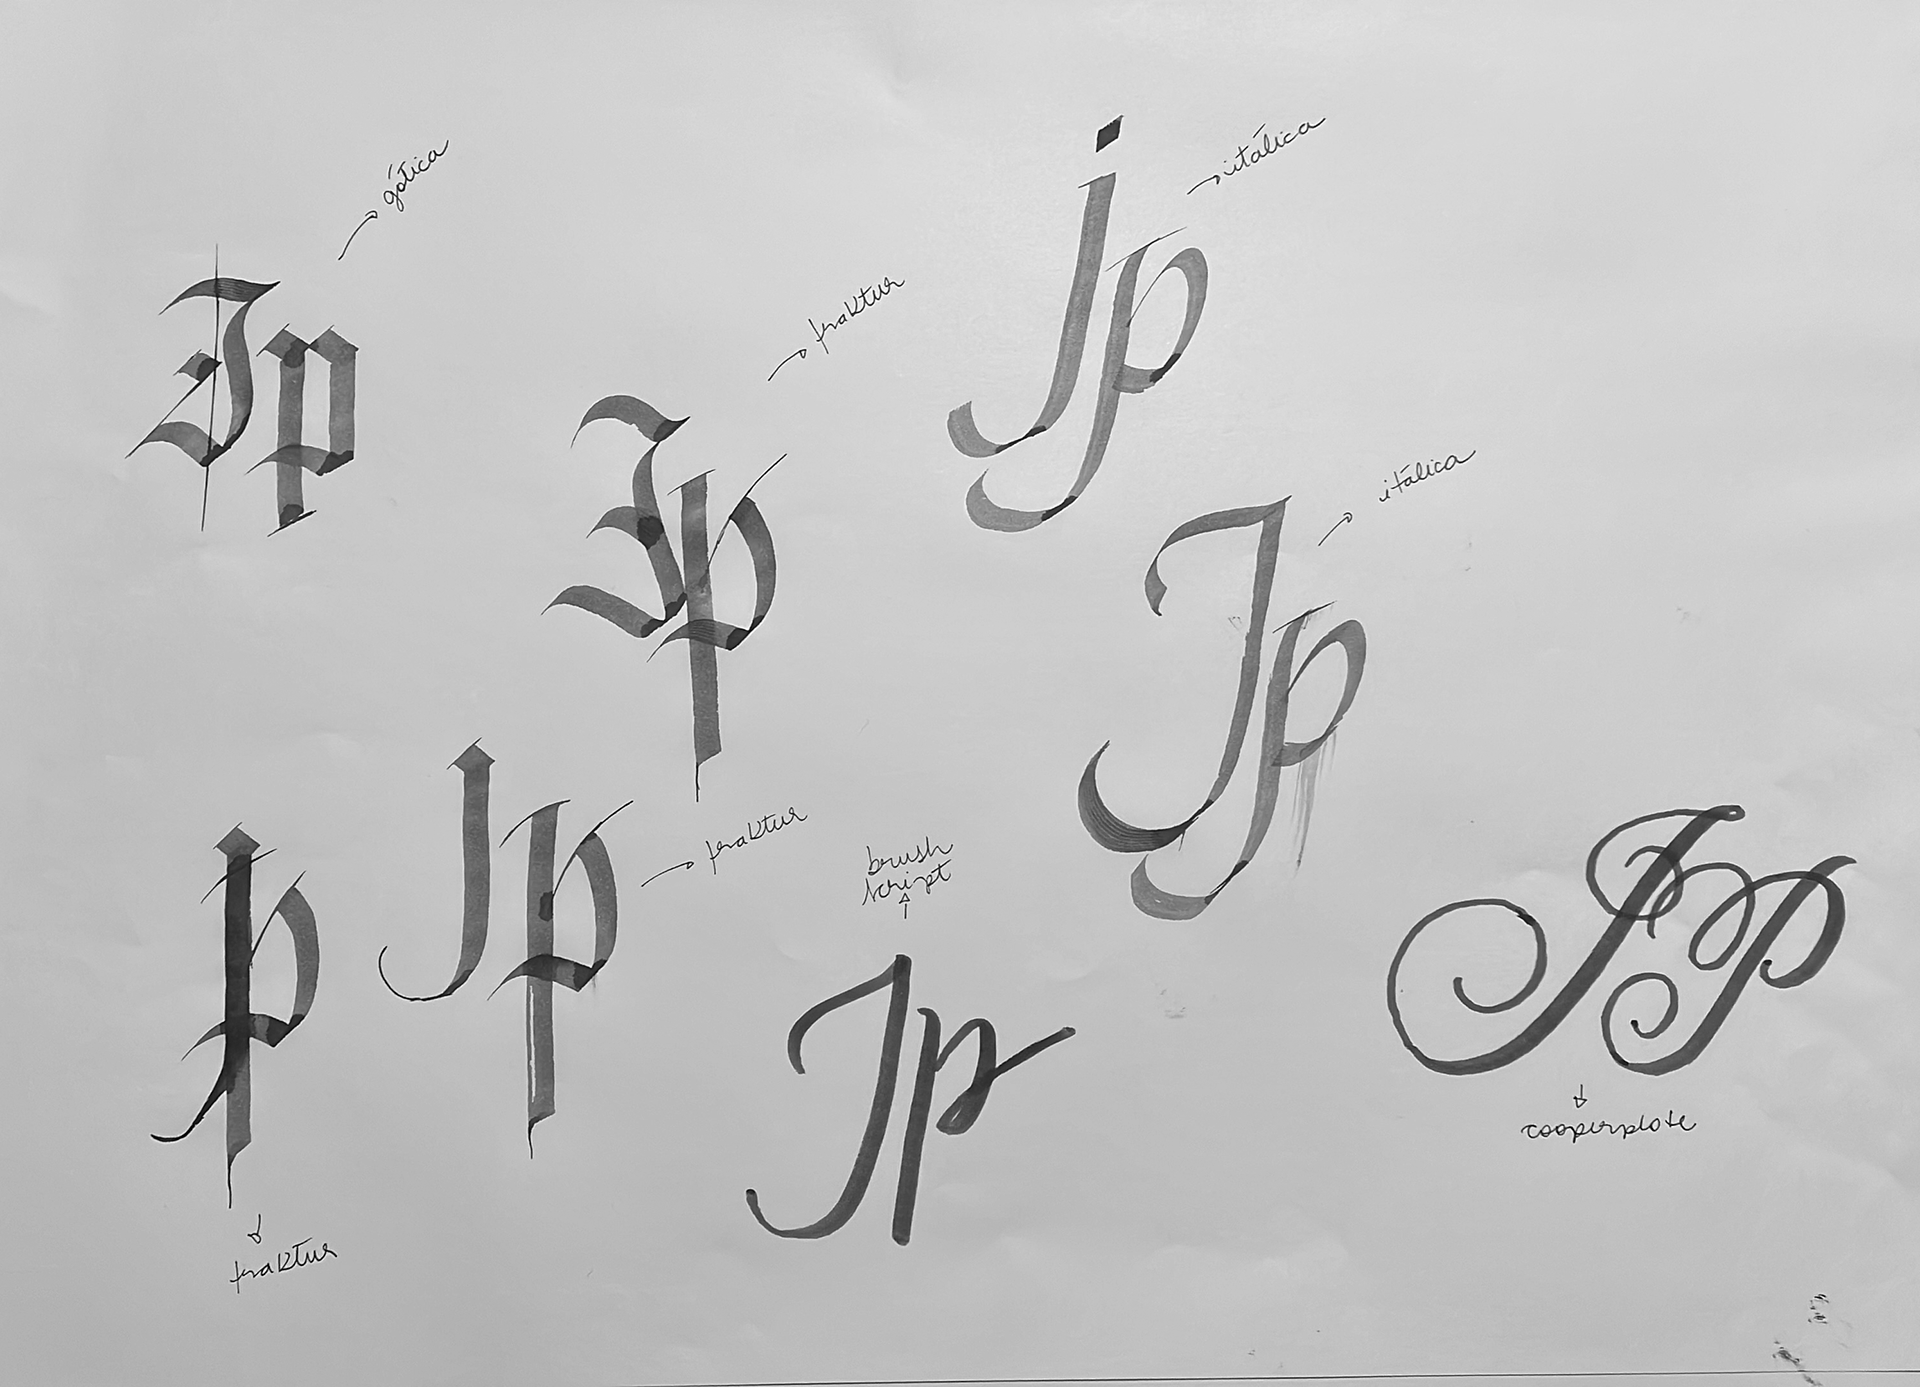 gótica
Jp
itálica
jp
fraktur
Jp
itálica
Jp
fraktur
Jp
brush
script
Jp
Jp
cooperplate
Jp
fraktur